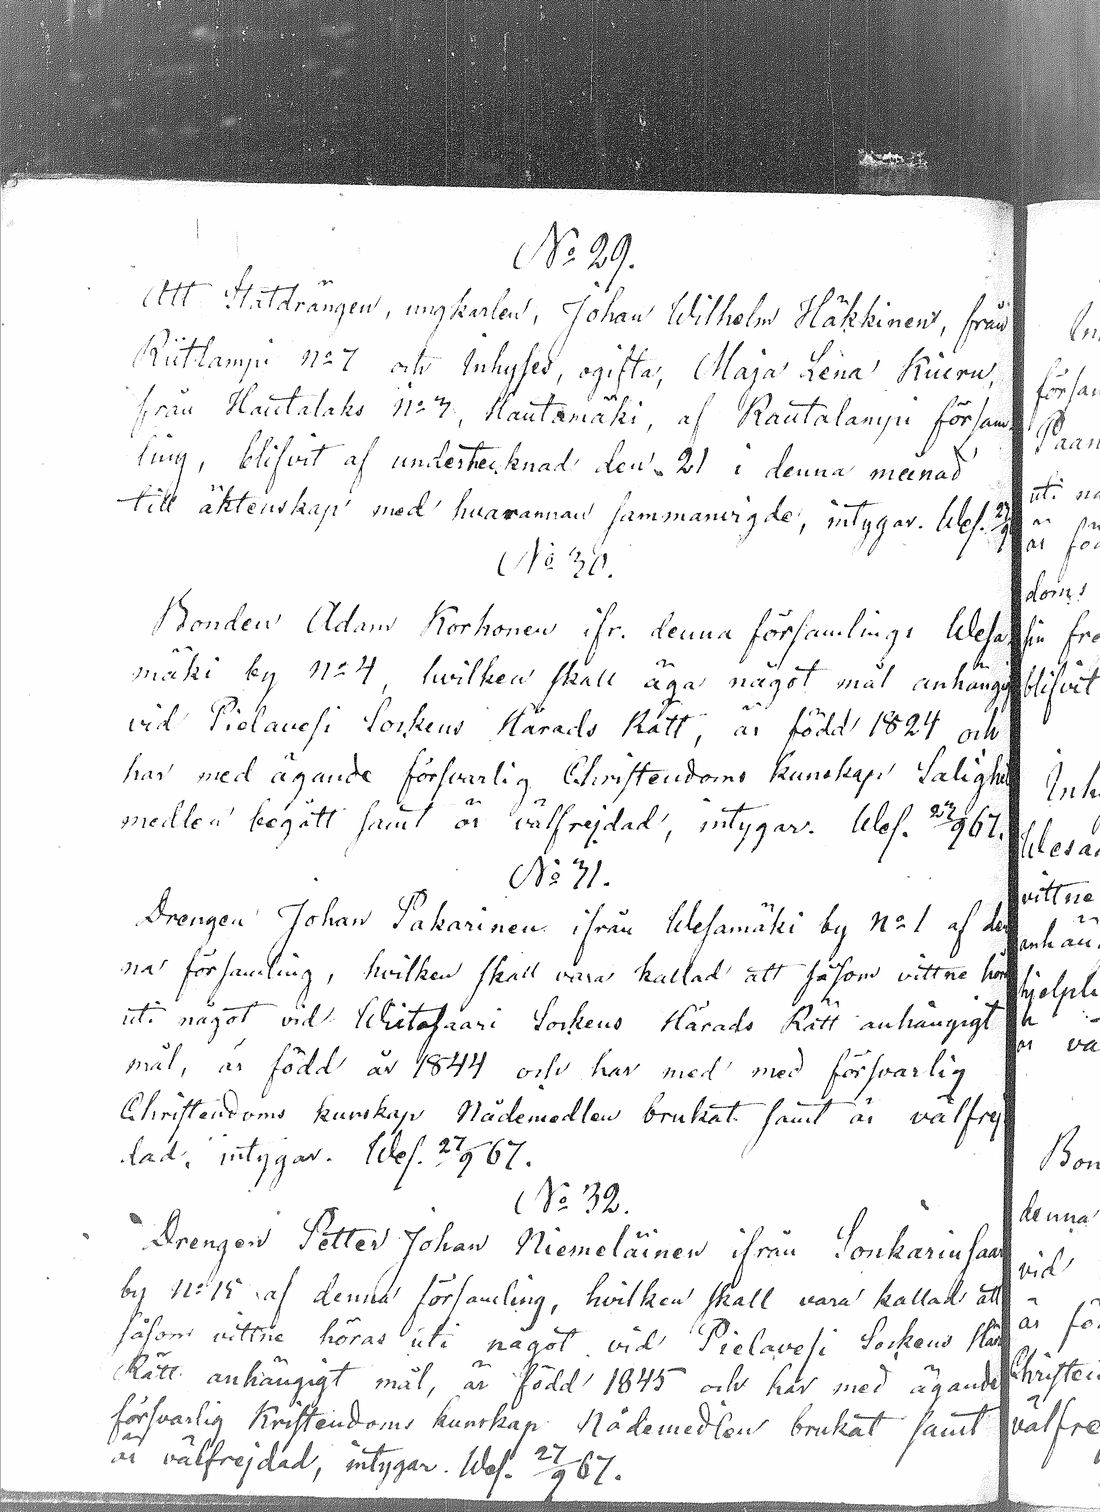 No 29.
Att Statdrängen, ungkarlen, Johan Wilhelm Häkkinen, från
Riitlampi No 7 och Inhyses, ogifta, Maja Lena Kiuru,
från Hautalaks No 3, Hautamäki, af Rautalampi försam-
ling, blifvit af undertecknad den 21 i denna månad
till äktenskap med hvarannan sammanvigde, intygar. Wes. 27/9
No 30.
Bonden Adam Korhonen ifr. denna församlings Wesa-
mäki by No 4, hvilken skall äga något mål anhängig
vid Pielavesi Sockens Härads Rätt, är född 1824 och
har med ägande försvarlig Christendoms kunskap Salighe
medlen begått samt är välfrejdad, intygar. Wes. 27/9 67.
No 31.
Drengen Johan Pakarinen ifrån Wesamäki by No 1 af den
na församling, hvilken skall vara kallad att såsom vittne höra
uti något vid Wiitasaari Sockens Härads Rätt anhängigt
mål, är född år 1844 och har med med försvarlig
Christendoms kunskap Nådemedlen brukat samt är välfrej
dad, intygar. Wes. 27/9 67.
No 32.
Drengen Petter Johan Niemeläinen ifrån Sonkarinsaari
by No 15 af denna församling, hvilken skall vara kallad att
såsom vittne höras uti något vid Pielavesi Sockens Här
Rätt anhängigt mål, är född 1845 och har med ägande
försvarlig Kristendoms kunskap Nådemedlen brukat samt
är välfrejdad, intygar. Wes. 27/9 67.
In
försam
Paan
uti nå
är föd
doms
sin fre
blifvit
Inh
Wesa
vittne
anhän
hjelpli
är vä
Bon
denna
vid
är fö
Christen
välfre